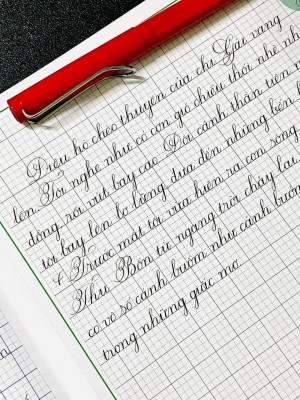 Điệu hò chèo thuyền của chị Gái vang
lên. Tôi nghe như có cơn gió chiều thổi nhè nhẹ
đồng, rồi vút bay cao. Đôi cánh thần tiên n
tôi bay lên lơ lửng, đưa đến những bến b
Trước mắt tôi vừa hiện ra con sông
Thu Bồn từ ngang trời chảy lại
có vô số cánh buồm như cánh bướm
trong những giấc mơ